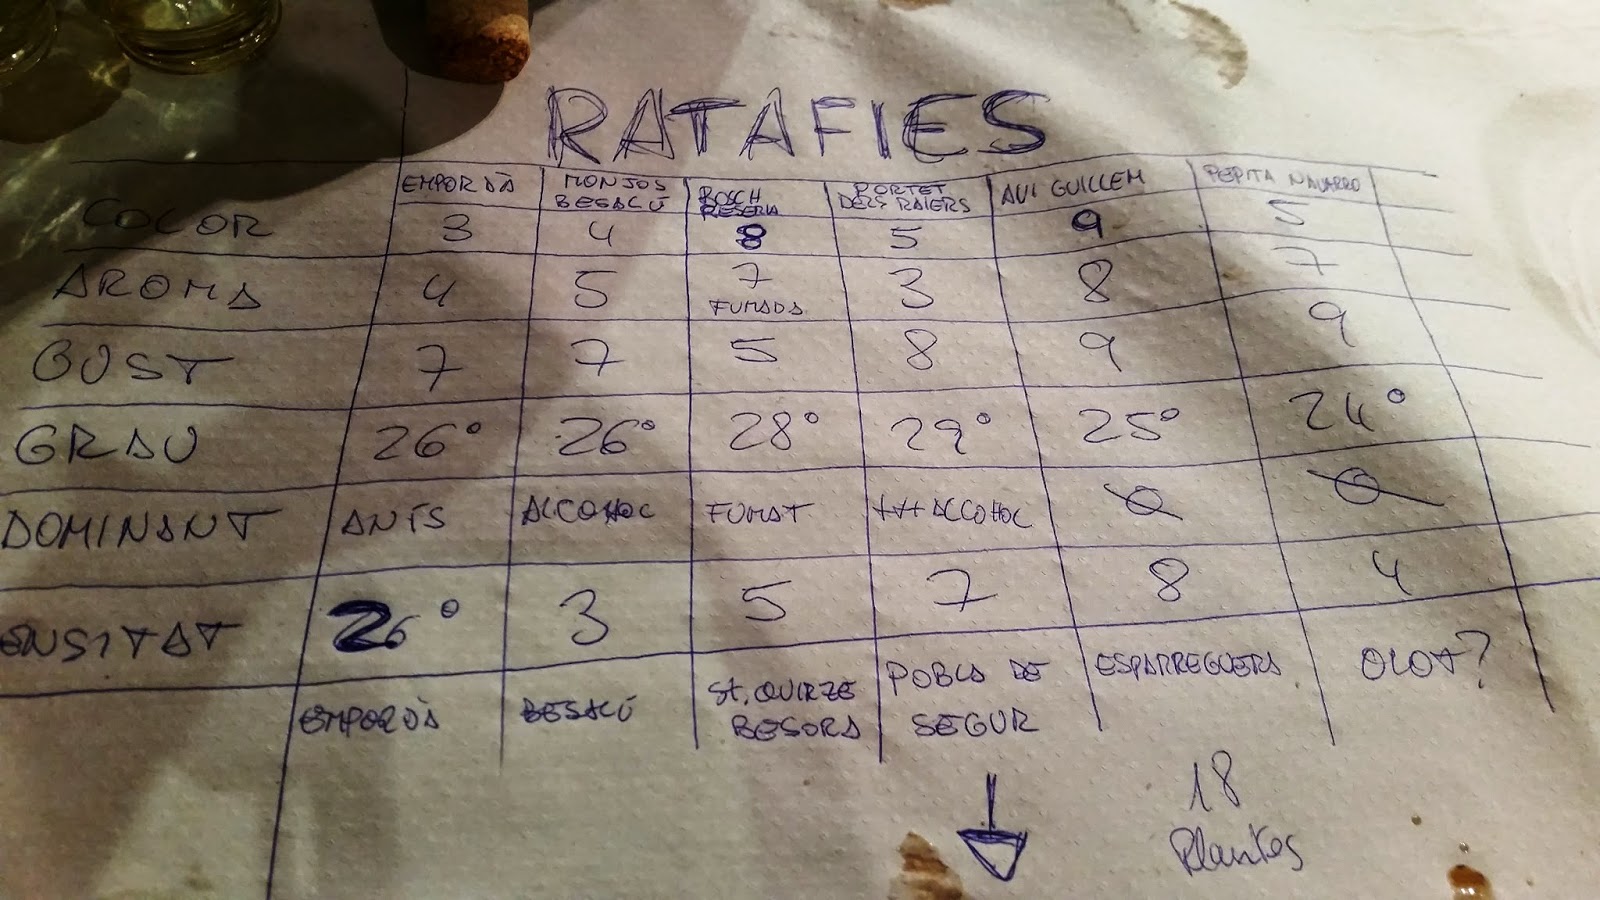 RATAFIES
EMPORDÀ MONJOS BESALÚ BOSCH RESERVA PORTET DELS RAIERS AVI GUILLEM PEPITA NAVARRO
COLOR 3 4 8 5 9 5
AROMA 4 5 7 FUMADA 3 8 7
GUST 7 7 5 8 9 9
GRAU 26° 26° 28° 29° 25° 24°
DOMINANT ANÍS ALCOHOL FUMAT +++ALCOHOL Ø Ø
ENSITAT 26° 3 5 7 8 4
EMPORDÀ BESALÚ ST. QUIRZE BESORA POBLA DE SEGUR ESPARREGUERA OLOT?
18
Plantes